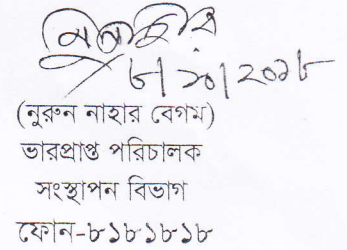 ৮/১০/২০১৮
(নুরুন নাহার বেগম)
ভারপ্রাপ্ত পরিচালক
সংস্থাপন বিভাগ
ফোন-৮১৮১৮১৮